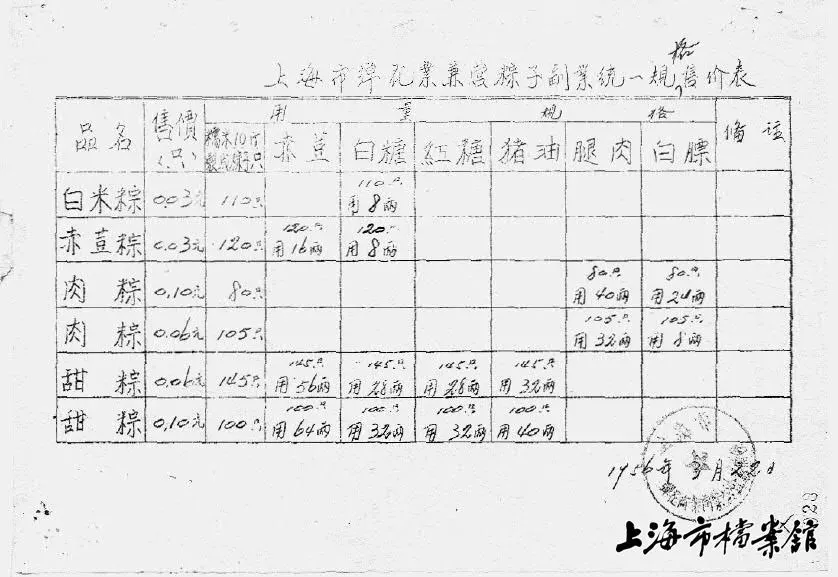 上海市弹花业兼营粽子副业统一规格售价表
品名 售價(只) 用量规格 俻註
糯米10斤製成粽子只 赤荳 白糖 红糖 猪油 腿肉 白膘
白米粽 0.03元 110只 110只用8两
赤荳粽 0.03元 120只 120只用16两 120只用8两
肉粽 0.10元 80只 80只用40两 80只用24两
肉粽 0.06元 105只 105只用32两 105只用8两
甜粽 0.06元 145只 145只用56两 145只用28两 145只用28两 145只用32两
甜粽 0.10元 100只 100只用64两 100只用32两 100只用32两 100只用40两
1956年 月22日
上海市檔案館